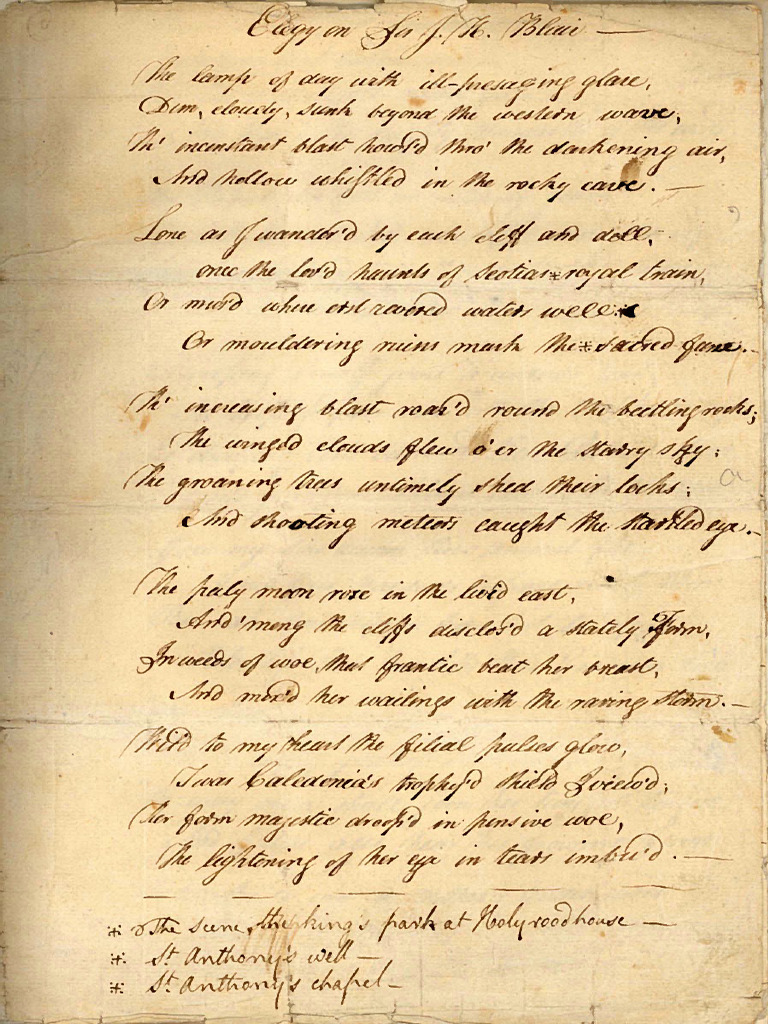 Elegy on Sir J. H. Blair —
The lamp of day with ill-presaging glare,
Dim, cloudy, sunk beyond the western wave,
Th' inconstant blast howl'd thro' the darkening air,
And hollow whistled in the rocky cave. —
Lone as I wander'd by each cliff and dell,
once the lov'd haunts of Scotia's※ royal train,
Or mus'd where erst revered waters well※
Or mouldering ruins mark the※ sacred fane. —
Th' increasing blast roar'd round the beetling rocks;
The winged clouds flew o'er the starry sky;
The groaning trees untimely shed their locks;
And shooting meteors caught the startled eye. —
The paly moon rose in the livid east,
And 'mong the cliffs disclos'd a stately Form,
In weeds of woe, that frantic beat her breast,
And mix'd her wailings with the raving storm. —
Wild to my heart the filial pulses glow,
Twas Caledonia's trophy'd shield I view'd;
Her form majestic droop'd in pensive woe,
The lightening of her eye in tears imbu'd. —
※ The scene, the king's park at Holyroodhouse —
※ St Anthony's well —
※ St Anthony's chapel —